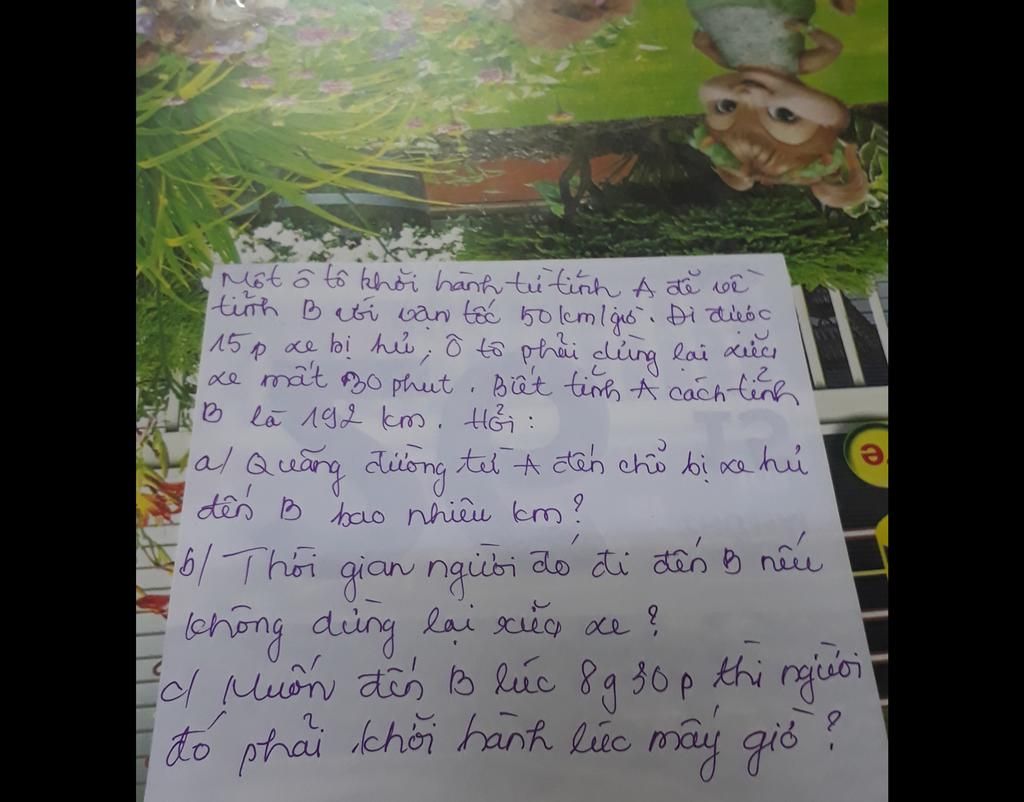 Một ô tô khởi hành từ tỉnh A để về
tỉnh B với vận tốc 50 km/giờ. Đi được
15p xe bị hư, Ô tô phải dừng lại sửa
xe mất 30 phút. Biết tỉnh A cách tỉnh
B là 192 km. Hỏi:
a/ Quãng đường từ A đến chỗ bị xe hư
đến B bao nhiêu km?
b/ Thời gian người đó đi đến B nếu
không dừng lại sửa xe?
c/ Muốn đến B lúc 8g30p thì người
đó phải khởi hành lúc mấy giờ?